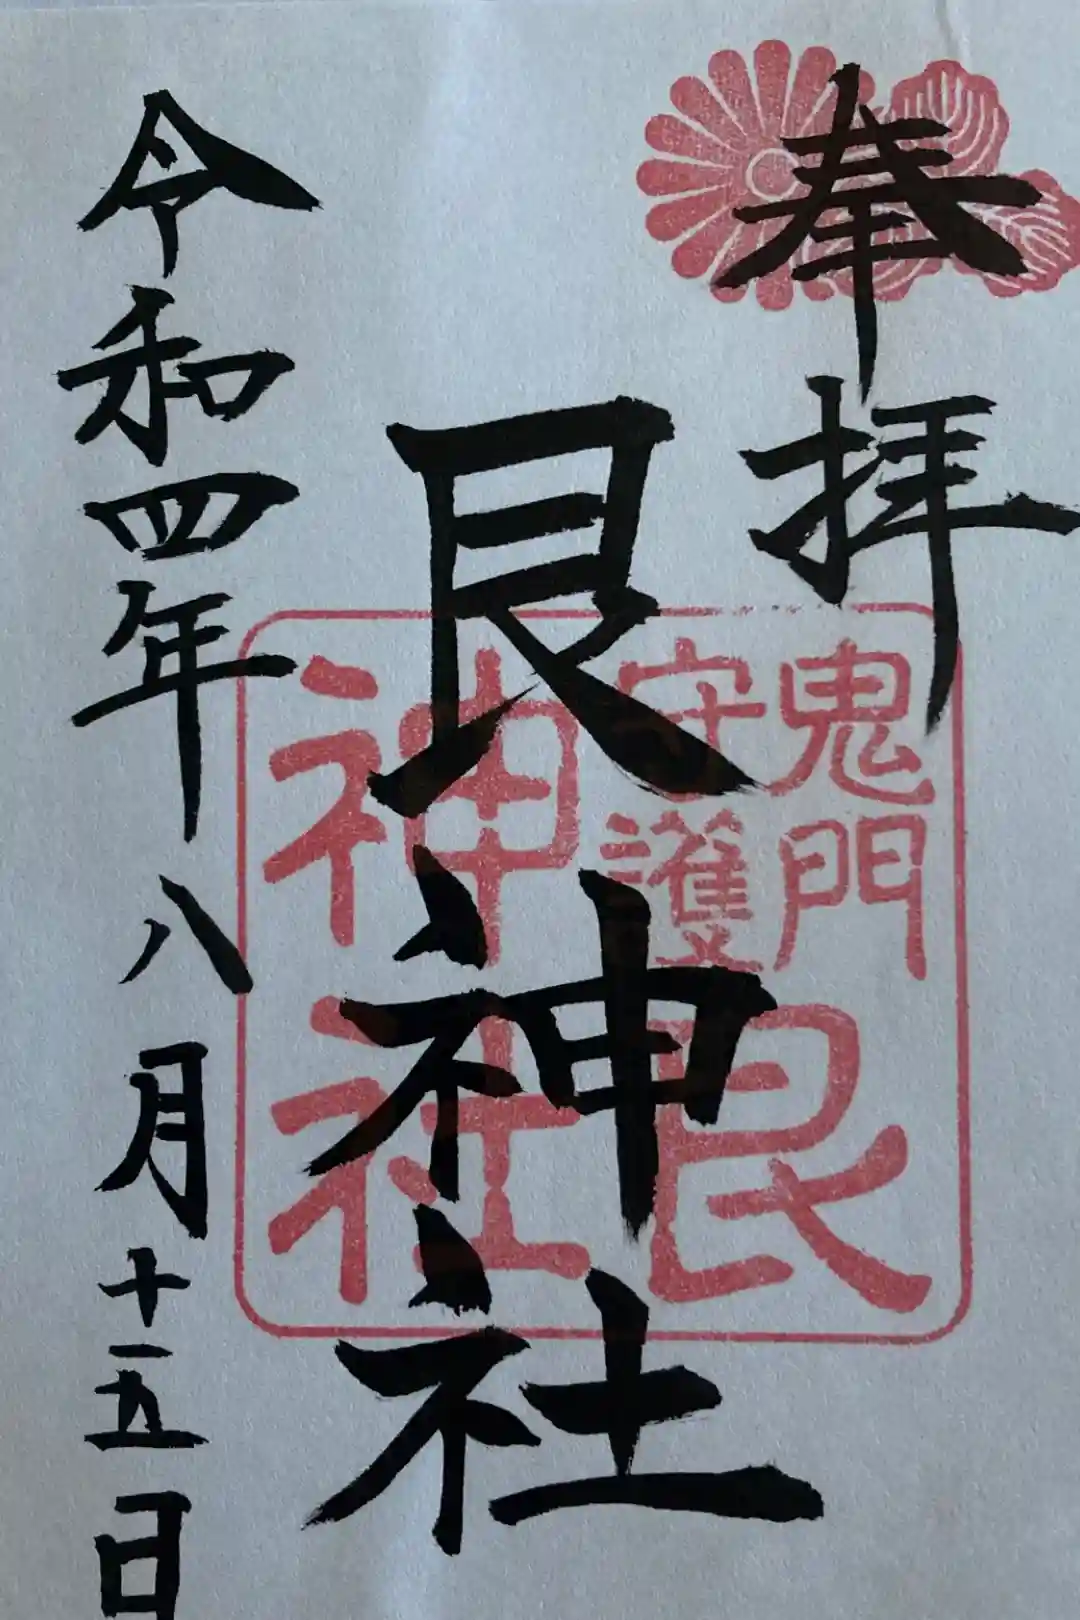 奉拝
鬼門
守護
艮
神社
艮神社
令和四年八月十五日